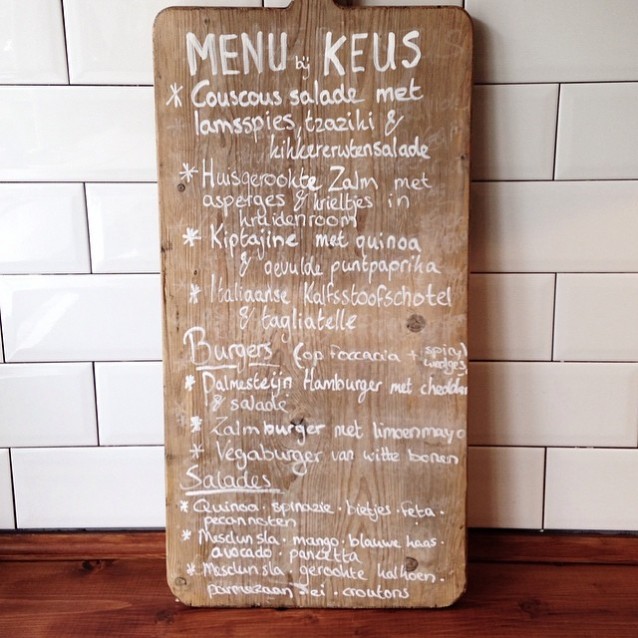 MENU bij KEUS
* Couscous salade met
lamsspies, tzaziki &
kikkererwtensalade
* Huisgerookte Zalm met
asperges & krieltjes in
kruidenroom
* Kiptajine met quinoa
& gevulde puntpaprika
* Italiaanse Kalfsstoofschotel
& tagliatelle
Burgers (op foccacia + spicy
wedges)
* Dalmesteijn Hamburger met cheddar
& salade
* Zalmburger met limoenmayo
* Vegaburger van witte bonen
Salades
* Quinoa · spinazie · bietjes · feta ·
pecannoten
* Mesclun sla · mango · blauwe kaas ·
avocado · pancetta
* Mesclun sla · gerookte kalkoen ·
parmezaan · ei · croutons